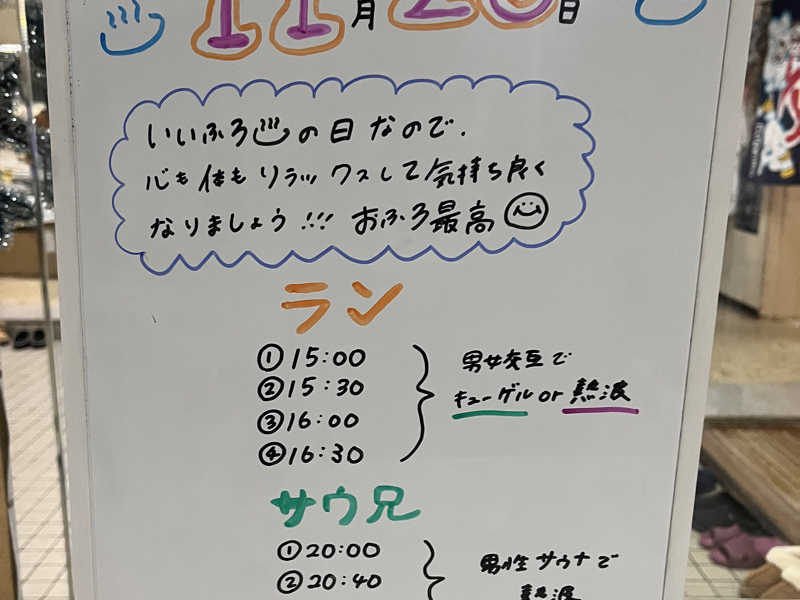 11月26日
いいふろの日なので、
心も体もリラックスして気持ち良く
なりましょう!!! おふろ最高
ラン
①15:00
②15:30
③16:00
④16:30
男女交互で
キューゲル or 熱波
サウ兄
①20:00
②20:40
男性サウナで
熱波